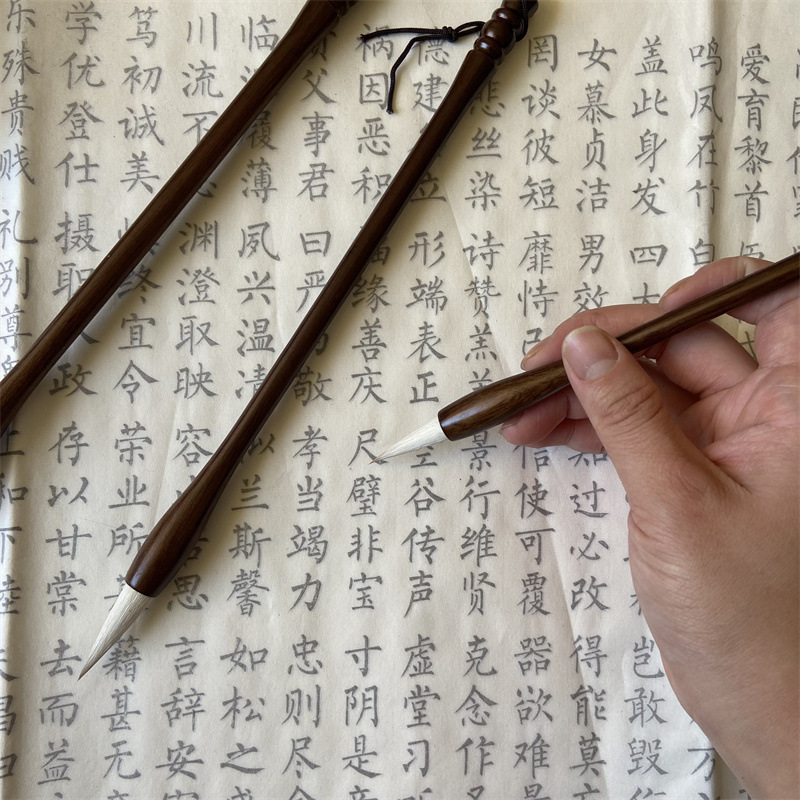 爱育黎首
鸣凤在竹 白
盖此身发 四大 岂敢毁
女慕贞洁 男效 知过必改 得能莫
罔谈彼短 靡恃己 信使可覆 器欲难量
悲丝染 诗赞羔羊 景行维贤 克念作
德建立 形端表正 空谷传声 虚堂习
祸因恶积 福缘善庆 尺璧非宝 寸阴是
父事君 曰严与敬 孝当竭力 忠则尽
临深履薄 夙兴温凊 似兰斯馨 如松之
川流不息 渊澄取映 容止若思 言辞安
笃初诚美 终宜令 荣业所 籍甚无
学优登仕 摄职从政 存以甘棠 去而益
乐殊贵贱 礼别尊 上和下睦 夫唱